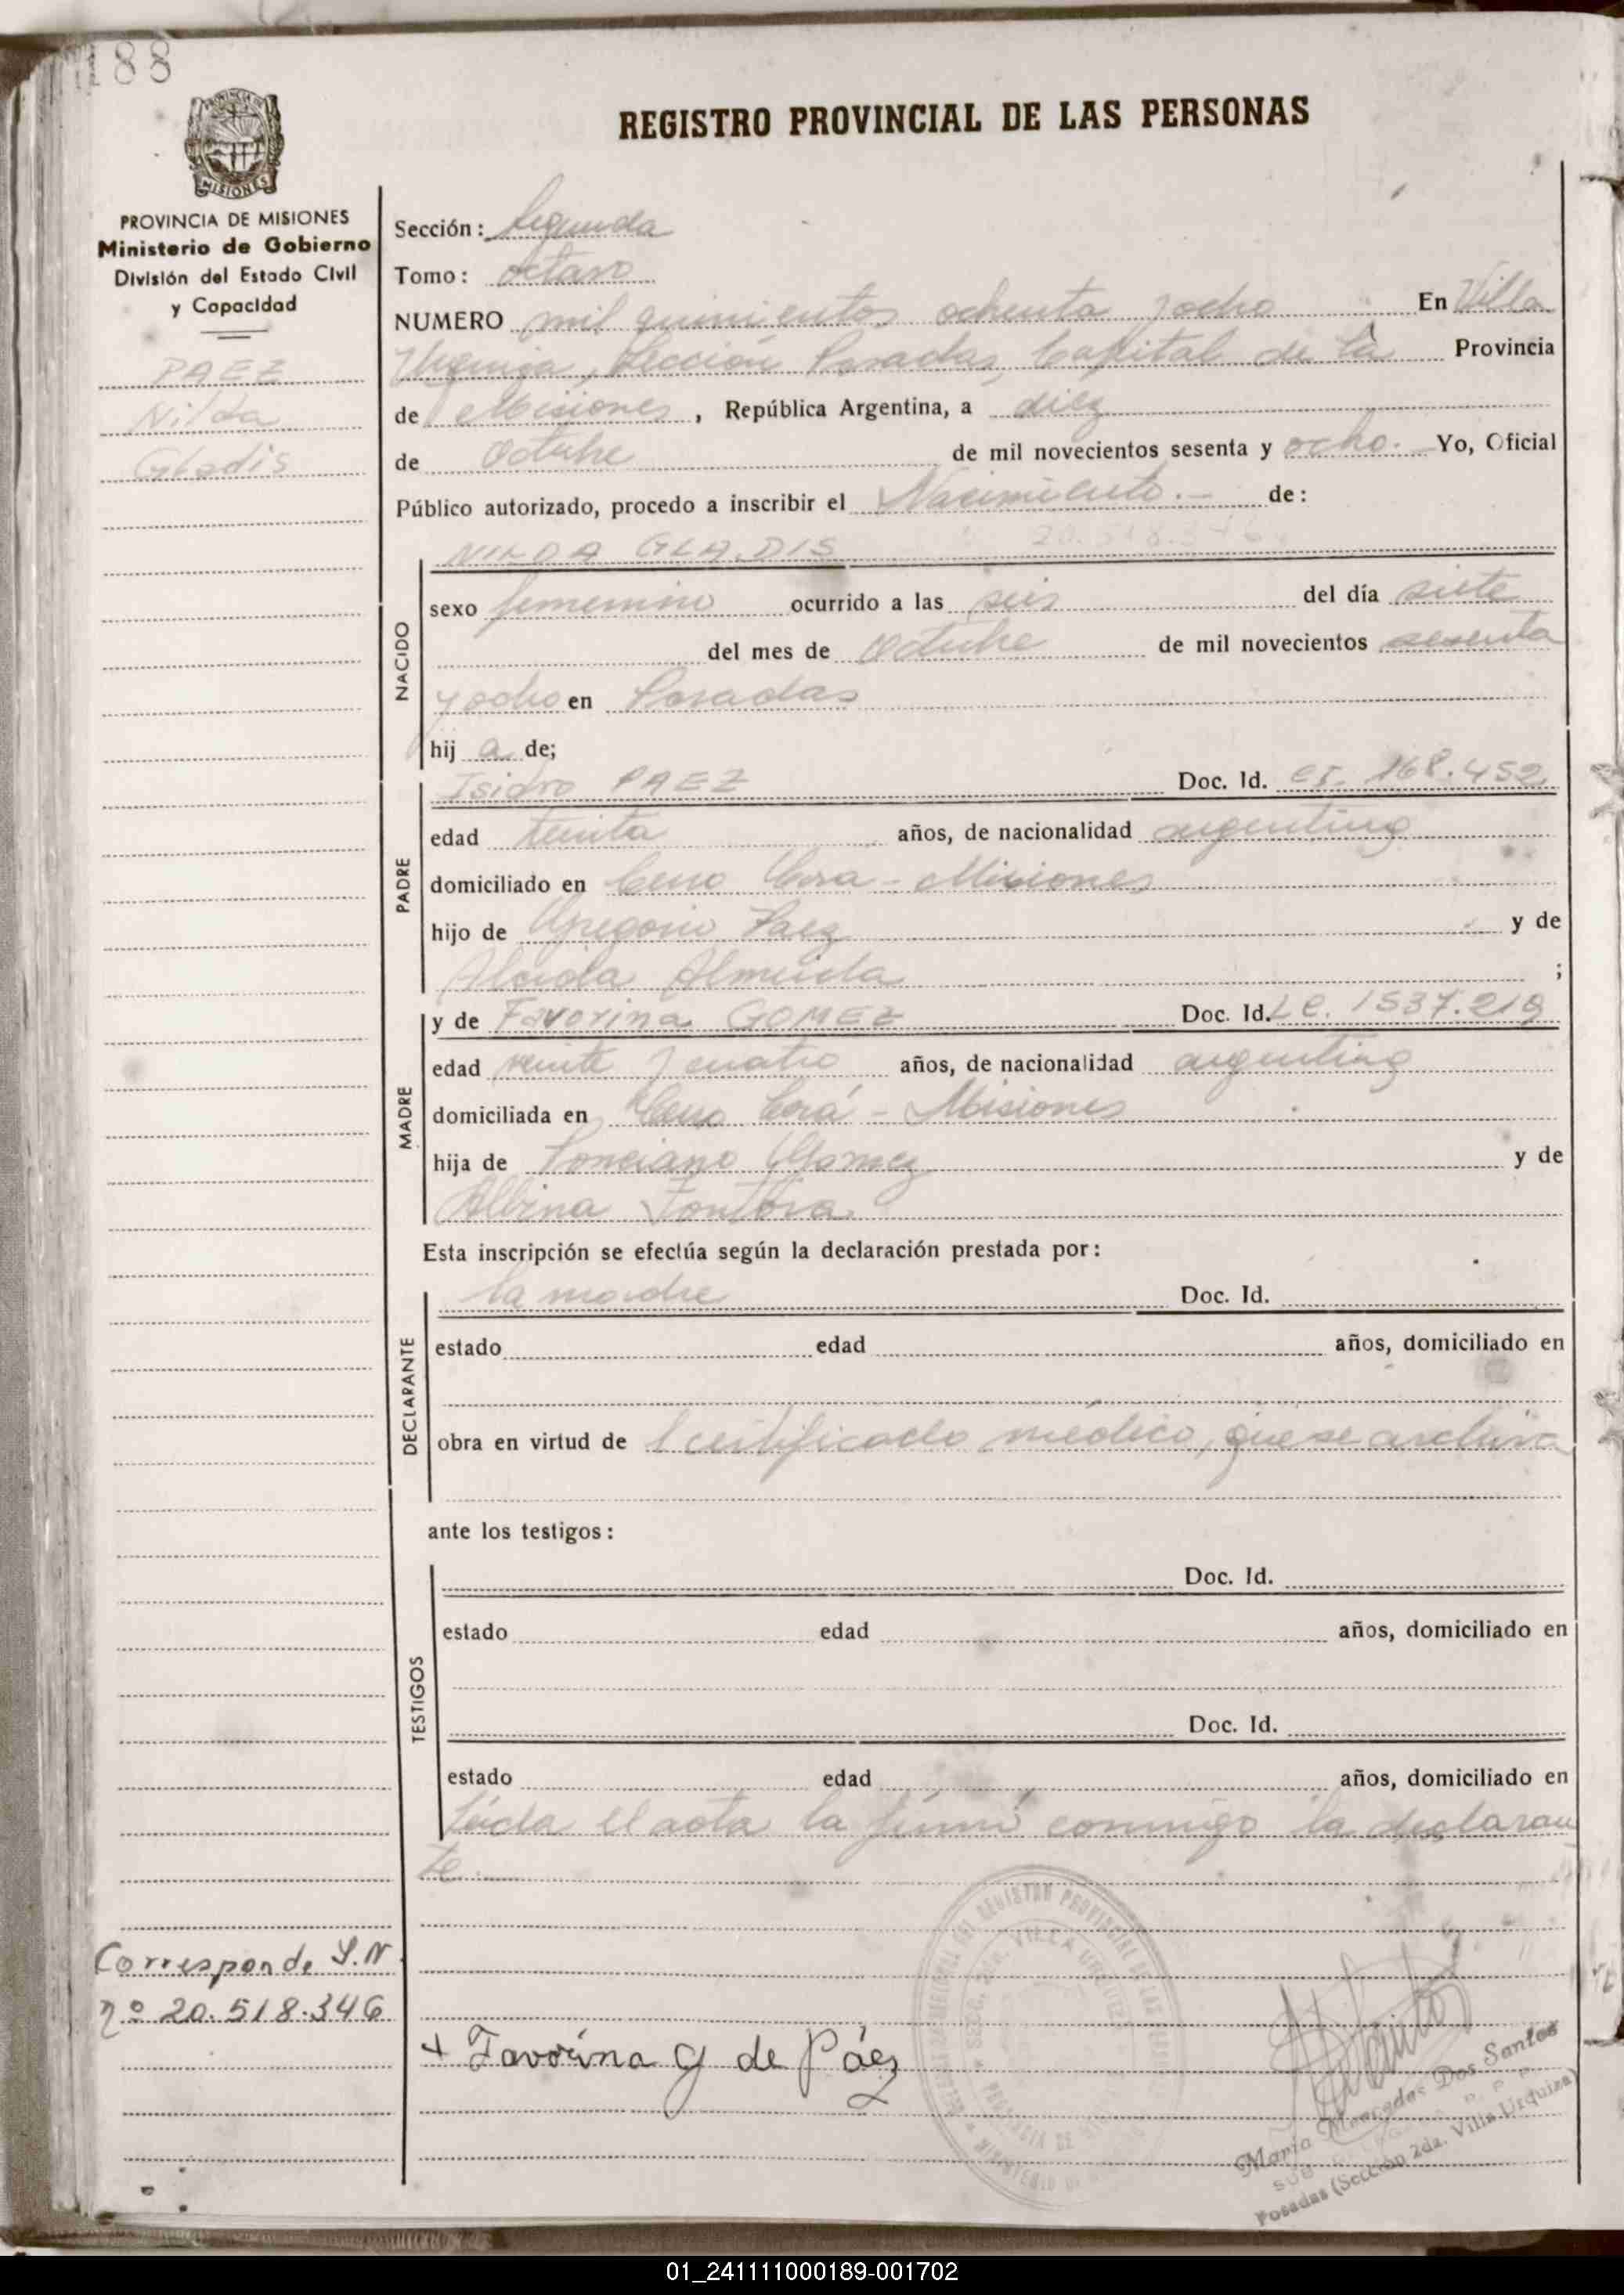 188
REGISTRO PROVINCIAL DE LAS PERSONAS
MISIONES
PROVINCIA DE MISIONES
Ministerio de Gobierno
División del Estado Civil
y Capacidad
PAEZ
Nilda
Gladis
Sección: Segunda
Tomo: octavo
NUMERO mil quinientos ochenta y ocho En Villa
Urquiza, Sección Posadas, Capital de la Provincia
de Misiones, República Argentina, a diez
de Octubre de mil novecientos sesenta y ocho.- Yo, Oficial
Público autorizado, procedo a inscribir el Nacimiento.- de:
NILDA GLADIS 20.518.346
NACIDO
sexo femenino ocurrido a las seis del día siete
del mes de Octubre de mil novecientos sesenta
y ocho en Posadas
hij a de;
PADRE
Isidro PAEZ Doc. Id. CI. 168.452
edad treinta años, de nacionalidad argentina
domiciliado en Cerro Cora - Misiones
hijo de Gregorio Paez y de
Almeida ;
MADRE
y de Favorina GOMEZ Doc. Id. LC. 1537.219
edad veinte y cuatro años, de nacionalidad argentina
domiciliada en Cerro Corá - Misiones
hija de Ponciano Gomez y de
Albina
Esta inscripción se efectúa según la declaración prestada por:
DECLARANTE
la madre Doc. Id.
estado edad años, domiciliado en
obra en virtud de l certificado médico, que se archiva
ante los testigos:
TESTIGOS
Doc. Id.
estado edad años, domiciliado en
Doc. Id.
estado edad años, domiciliado en
Leída el acta la firmó conmigo la declaran
te.-
Corresponde L.N
nº 20.518.346
+ Favorina G de Páez
María Mercedes Dos Santos
Posadas (Sección 2da. Villa Urquiza)
01_241111000189-001702